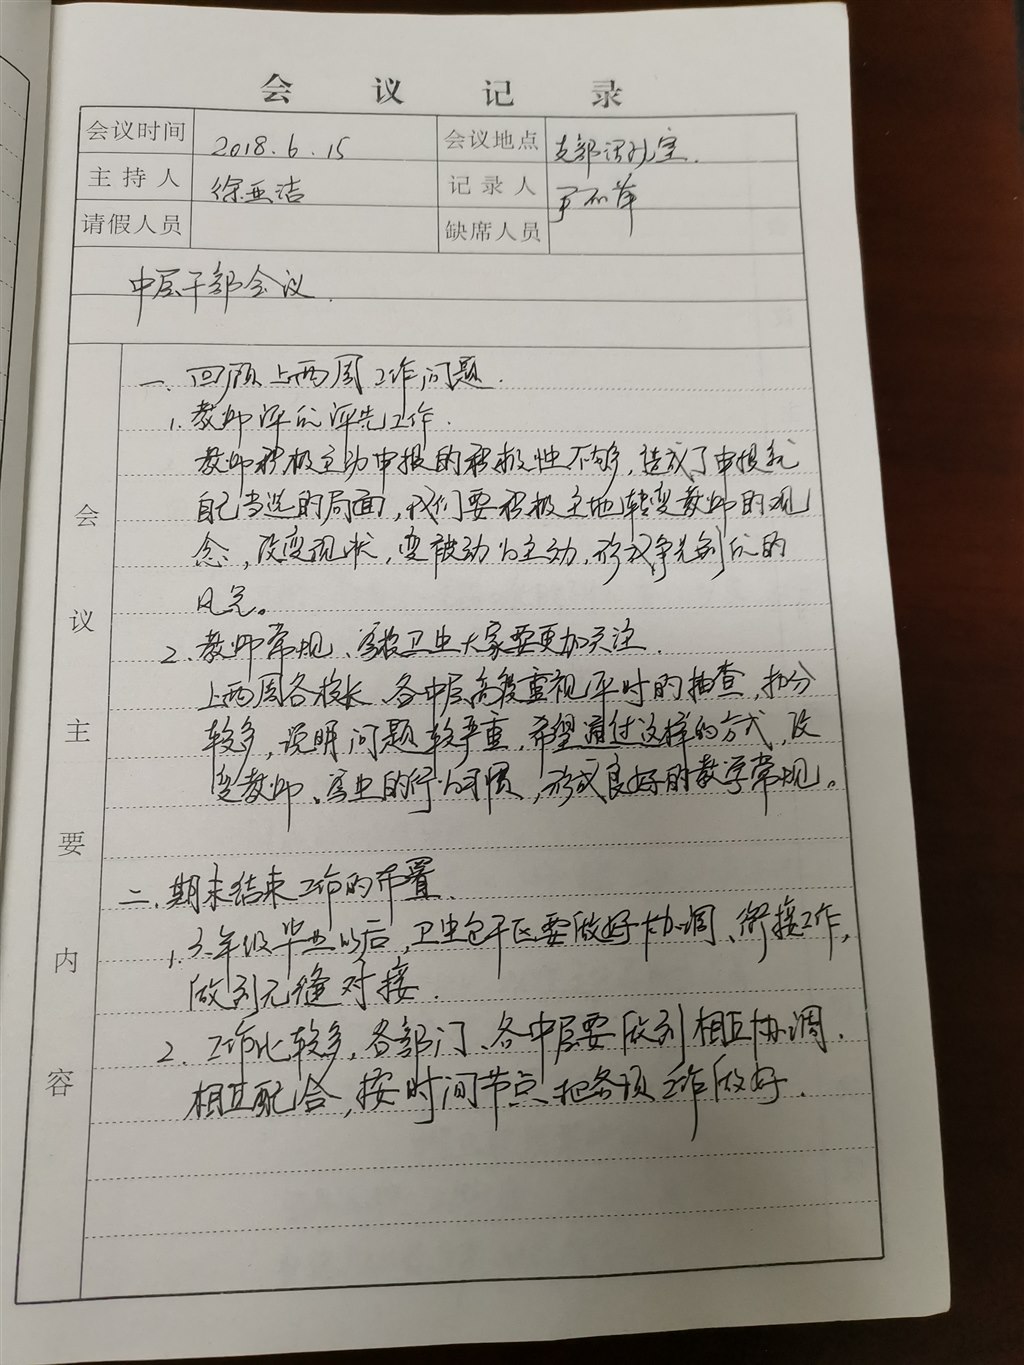 会议记录
会议时间 2018.6.15 会议地点 支部活动室.
主持人 徐亚洁 记录人
请假人员 缺席人员
中层干部会议.
会议主要内容
一. 回顾上两周工作问题.
1. 教师评优评先工作.
教师积极主动申报的积极性不够,造成了申报就
自己当选的局面,我们要积极主地转变教师的观
念,改变现状,变被动为主动,形成争先创优的
风气。
2. 教师常规、卫生大家要更加关注.
上两周各校长、各中层高度重视平时的抽查,扣分
较多,说明问题较严重,希望通过这样的方式,改
变教师、的行为习惯,形成良好的教学常规。
二. 期末结束工作的布置.
1. 六年级毕业以后,卫生包干区要做好协调、衔接工作,
做到无缝对接.
2. 工作比较多,各部门、各中层要做到相互协调.
相互配合,按时间节点把各项工作做好.